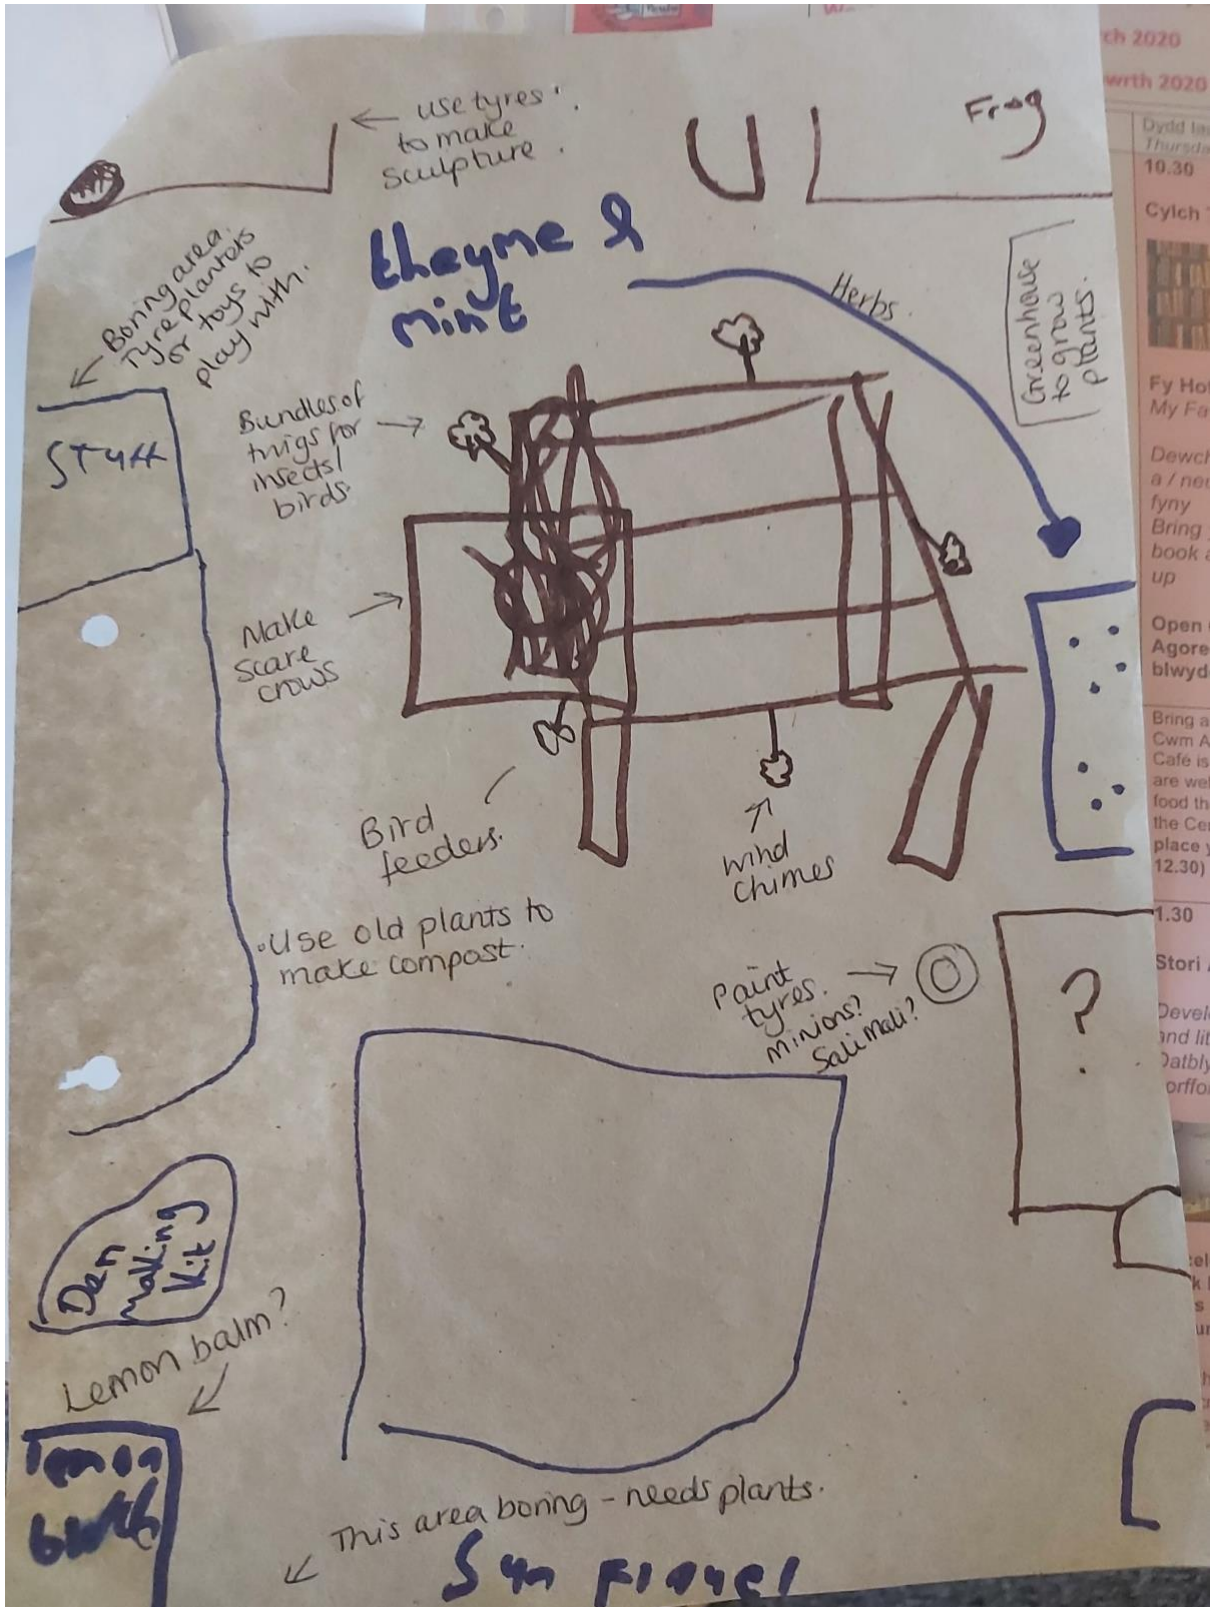 ← use tyres
to make
sculpture.
Frog
theyme &
mint
Herbs.
Greenhouse
to grow
plants.
Boring area.
Tyre planters
or toys to
play with.
STUff
Bundles of
twigs for
insects/
birds.
Make
scare
crows
Bird
feeders.
wind
chimes
.Use old plants to
make compost.
Paint
tyres.
minions?
Sali mali?
?
Den
making
kit
Lemon balm?
lemon
This area boring - needs plants.
Sun
ch 2020
wrth 2020
Dydd Iau
Thursda
10.30
Cylch
Fy Ho
My Fa
Dewch
a / ne
fyny
Bring
book a
up
Open
Agore
blwyd
Bring a
Cwm A
Café is
are wel
food th
the Ce
place y
12.30)
1.30
Stori
Devel
and lit
Datbly
orffo